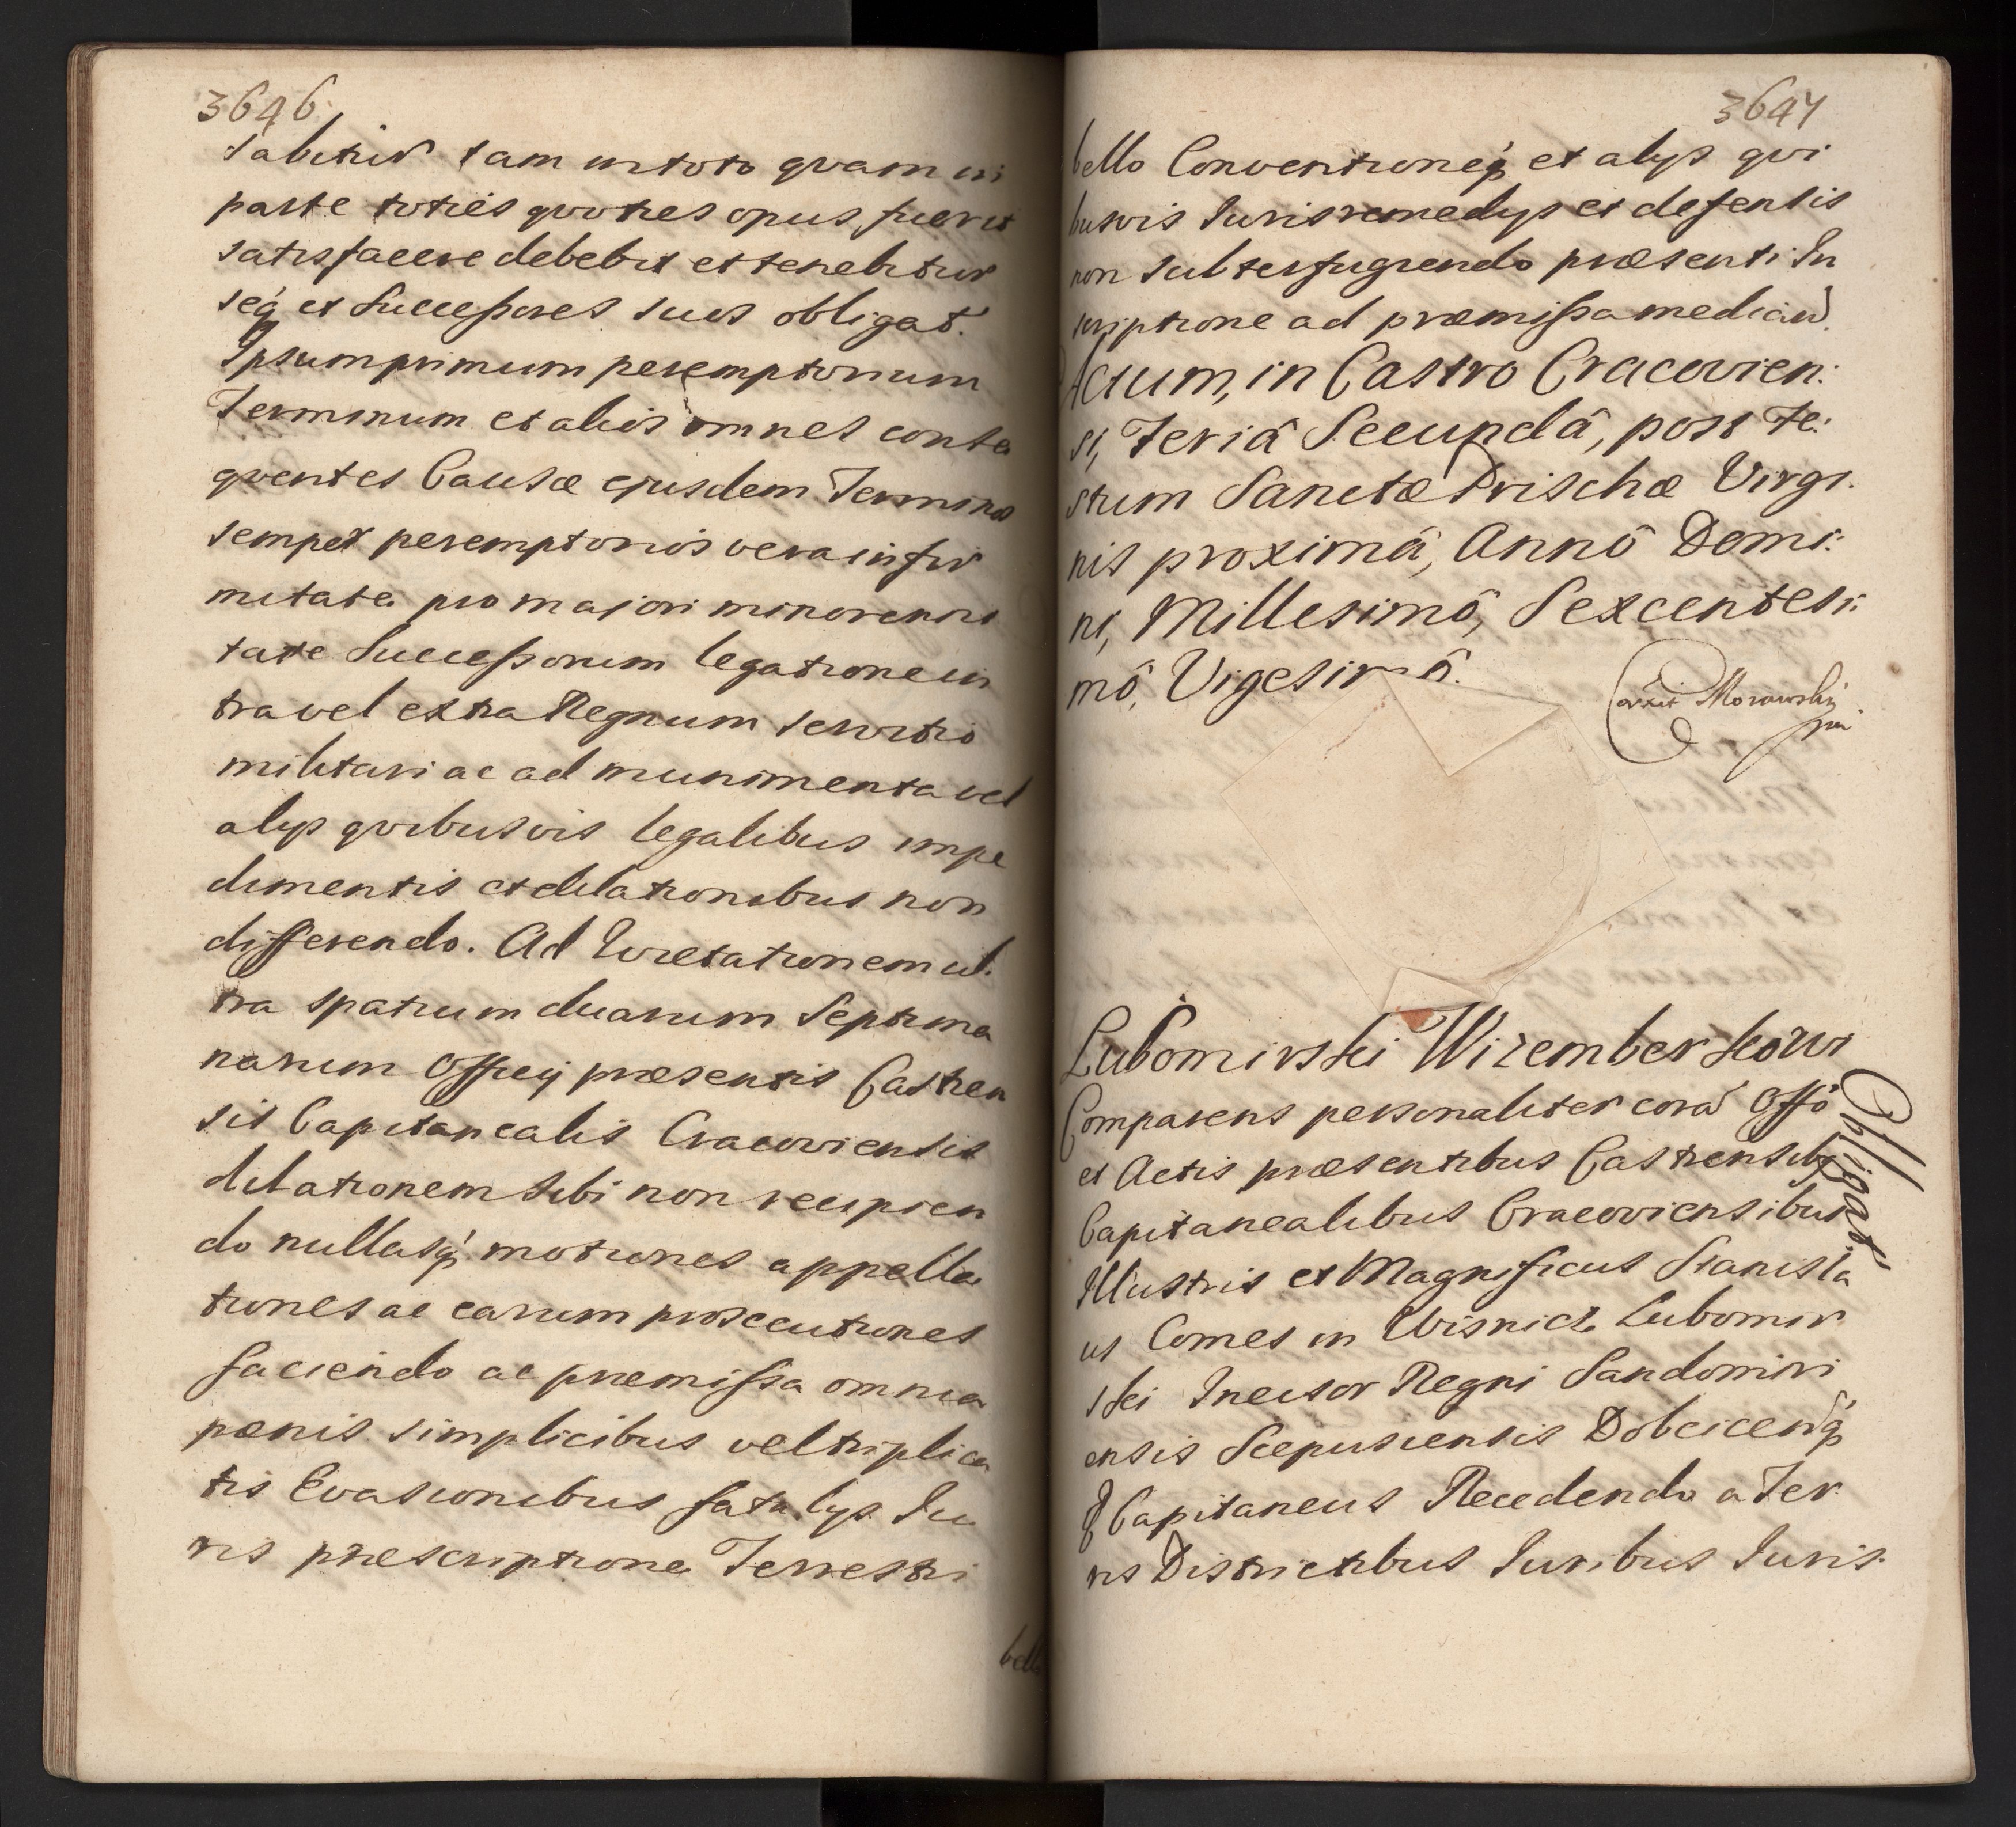 3646
tabitur tam in toto quam in
parte toties quoties opus fuerit
satisfacere debebit et tenebitur
seq́ et Successores suos obligat.
Ipsum primum peremptorium
Terminum et alios omnes conse
quentes Causæ ejusdem Terminos
semper peremptorios vera infir
mitate pro majori minorenni
tate Successorum legatione in
tra vel extra Regnum servitio
militari ac ad munimenta vel
alys quibusvis legalibus impe
dimentis et dilationibus non
differendo. Ad Iuretationem ul
tra spatium duarum Septima
narum Officÿ præsentis Castren
sis Capitanealis Cracoviensis
dilationem sibi non recipien
do nullasq́ motiones appella
tiones ac earum prosecutiones
faciendo ac præmissa omnia
pænis simplicibus vel triplica
tis Evasionibus fatalys Iu
ris præscriptione Terrestri
bell
3647
bello Conventioneq́ et alys qui
busvis Iuris remedys et defensis
non subterfugiendo præsenti In
scriptione ad præmissa median̄.
Actum, in Castro Cracovien:
si, Feriâ Secundâ, post Fe:
stum Sanctæ Prischæ Virgi.
nis proximâ, Annô Domi:
ni, Millesimô, Sexcentesi:
mô, Vigesimô.
Corxit Morawskj
mp
Lubomirski Wizemberkowi
Comparens personaliter corā Offō
et Actis præsentibus Castrensibq
Obligat
Capitanealibus Cracoviensibus
Illustris et Magnificus Stanisla
us Comes in Wisnicz Lubomir
ski Incisor Regni Sandomiri
ensis Scepusiensis Dobcicen̄q́
Capitaneus Recedendo a Ter
ris Districtibus Iuribus Iuris